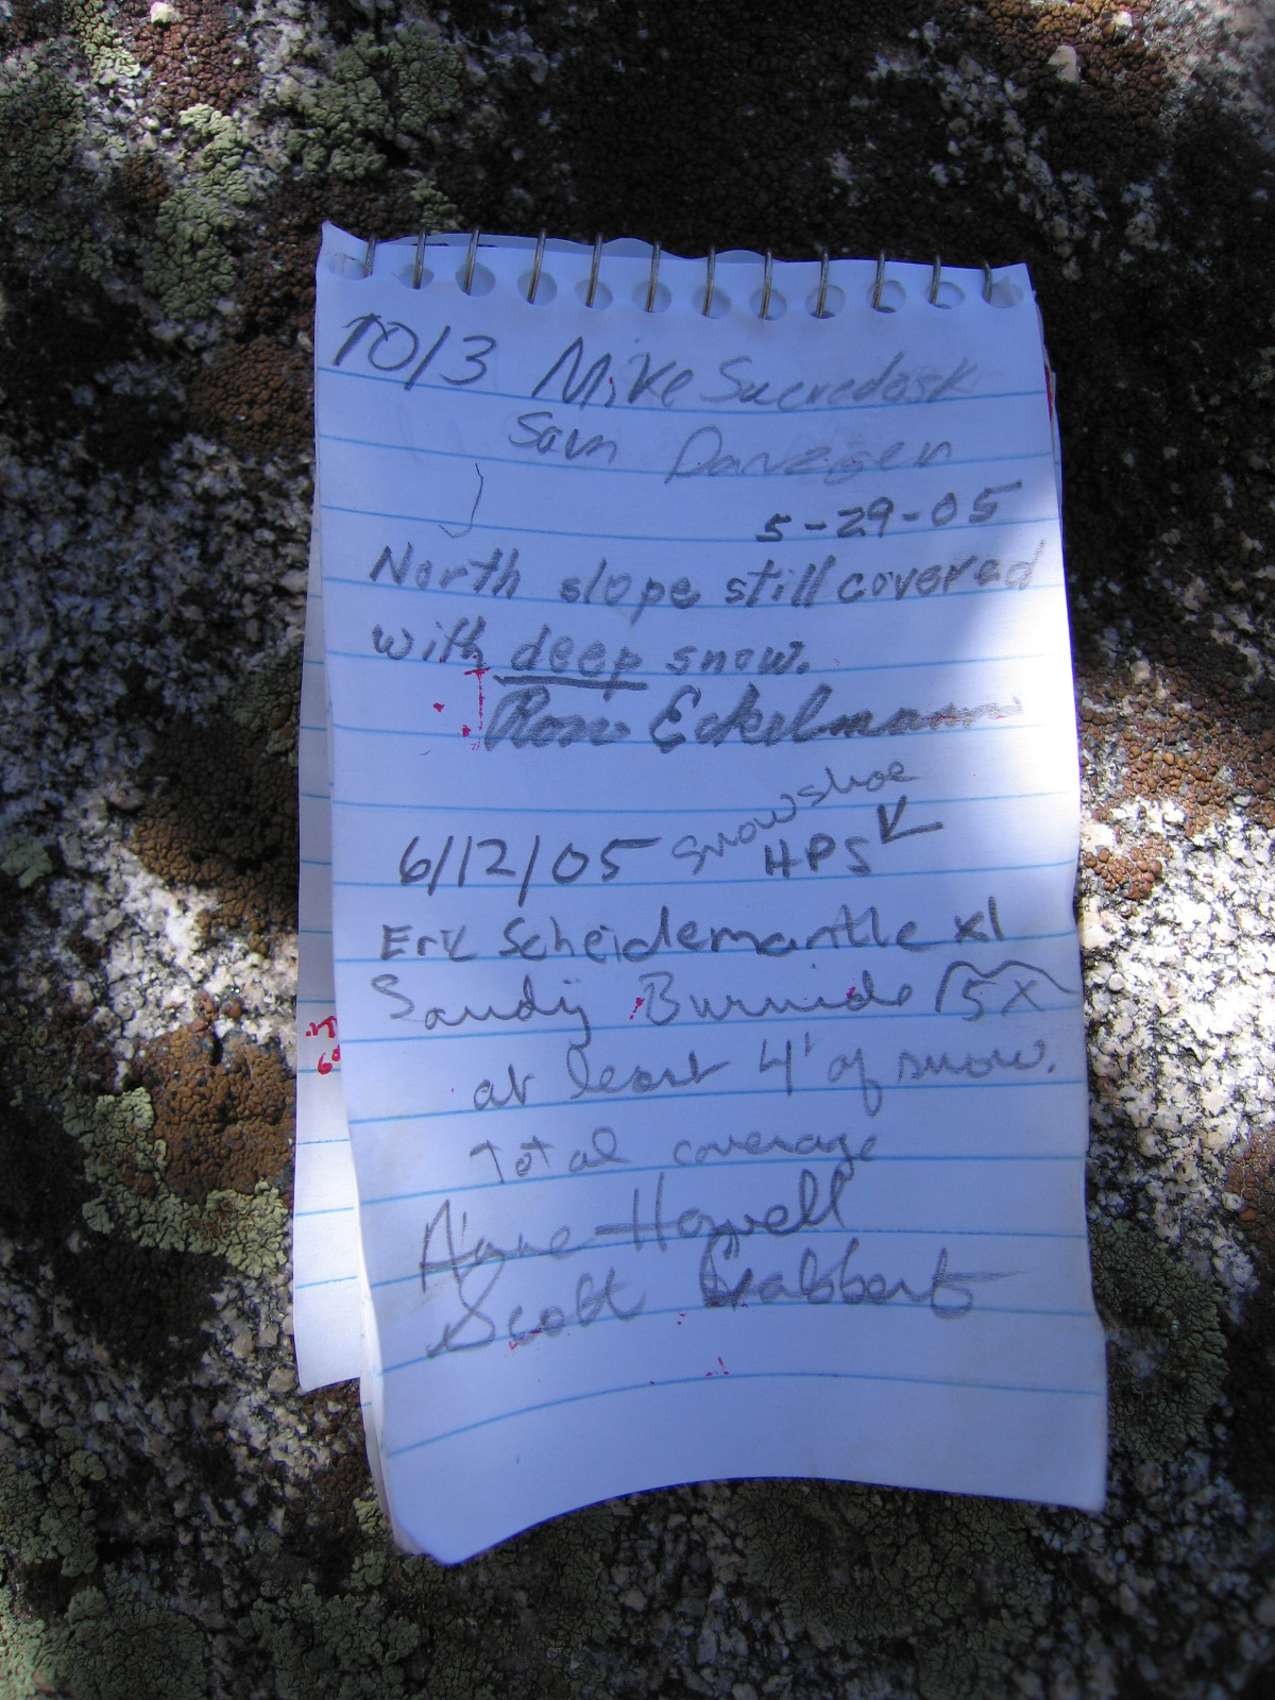 10/3 Mike
Sam Danzigen
5-29-05
North slope still covered
with deep snow.
Ron Eckelmann
snowshoe
6/12/05 HPS
Eric Scheidemantle x1
Sandy Burnside 15X
at least 4' of snow.
total coverage
Anne Howell
Scott Grabbert